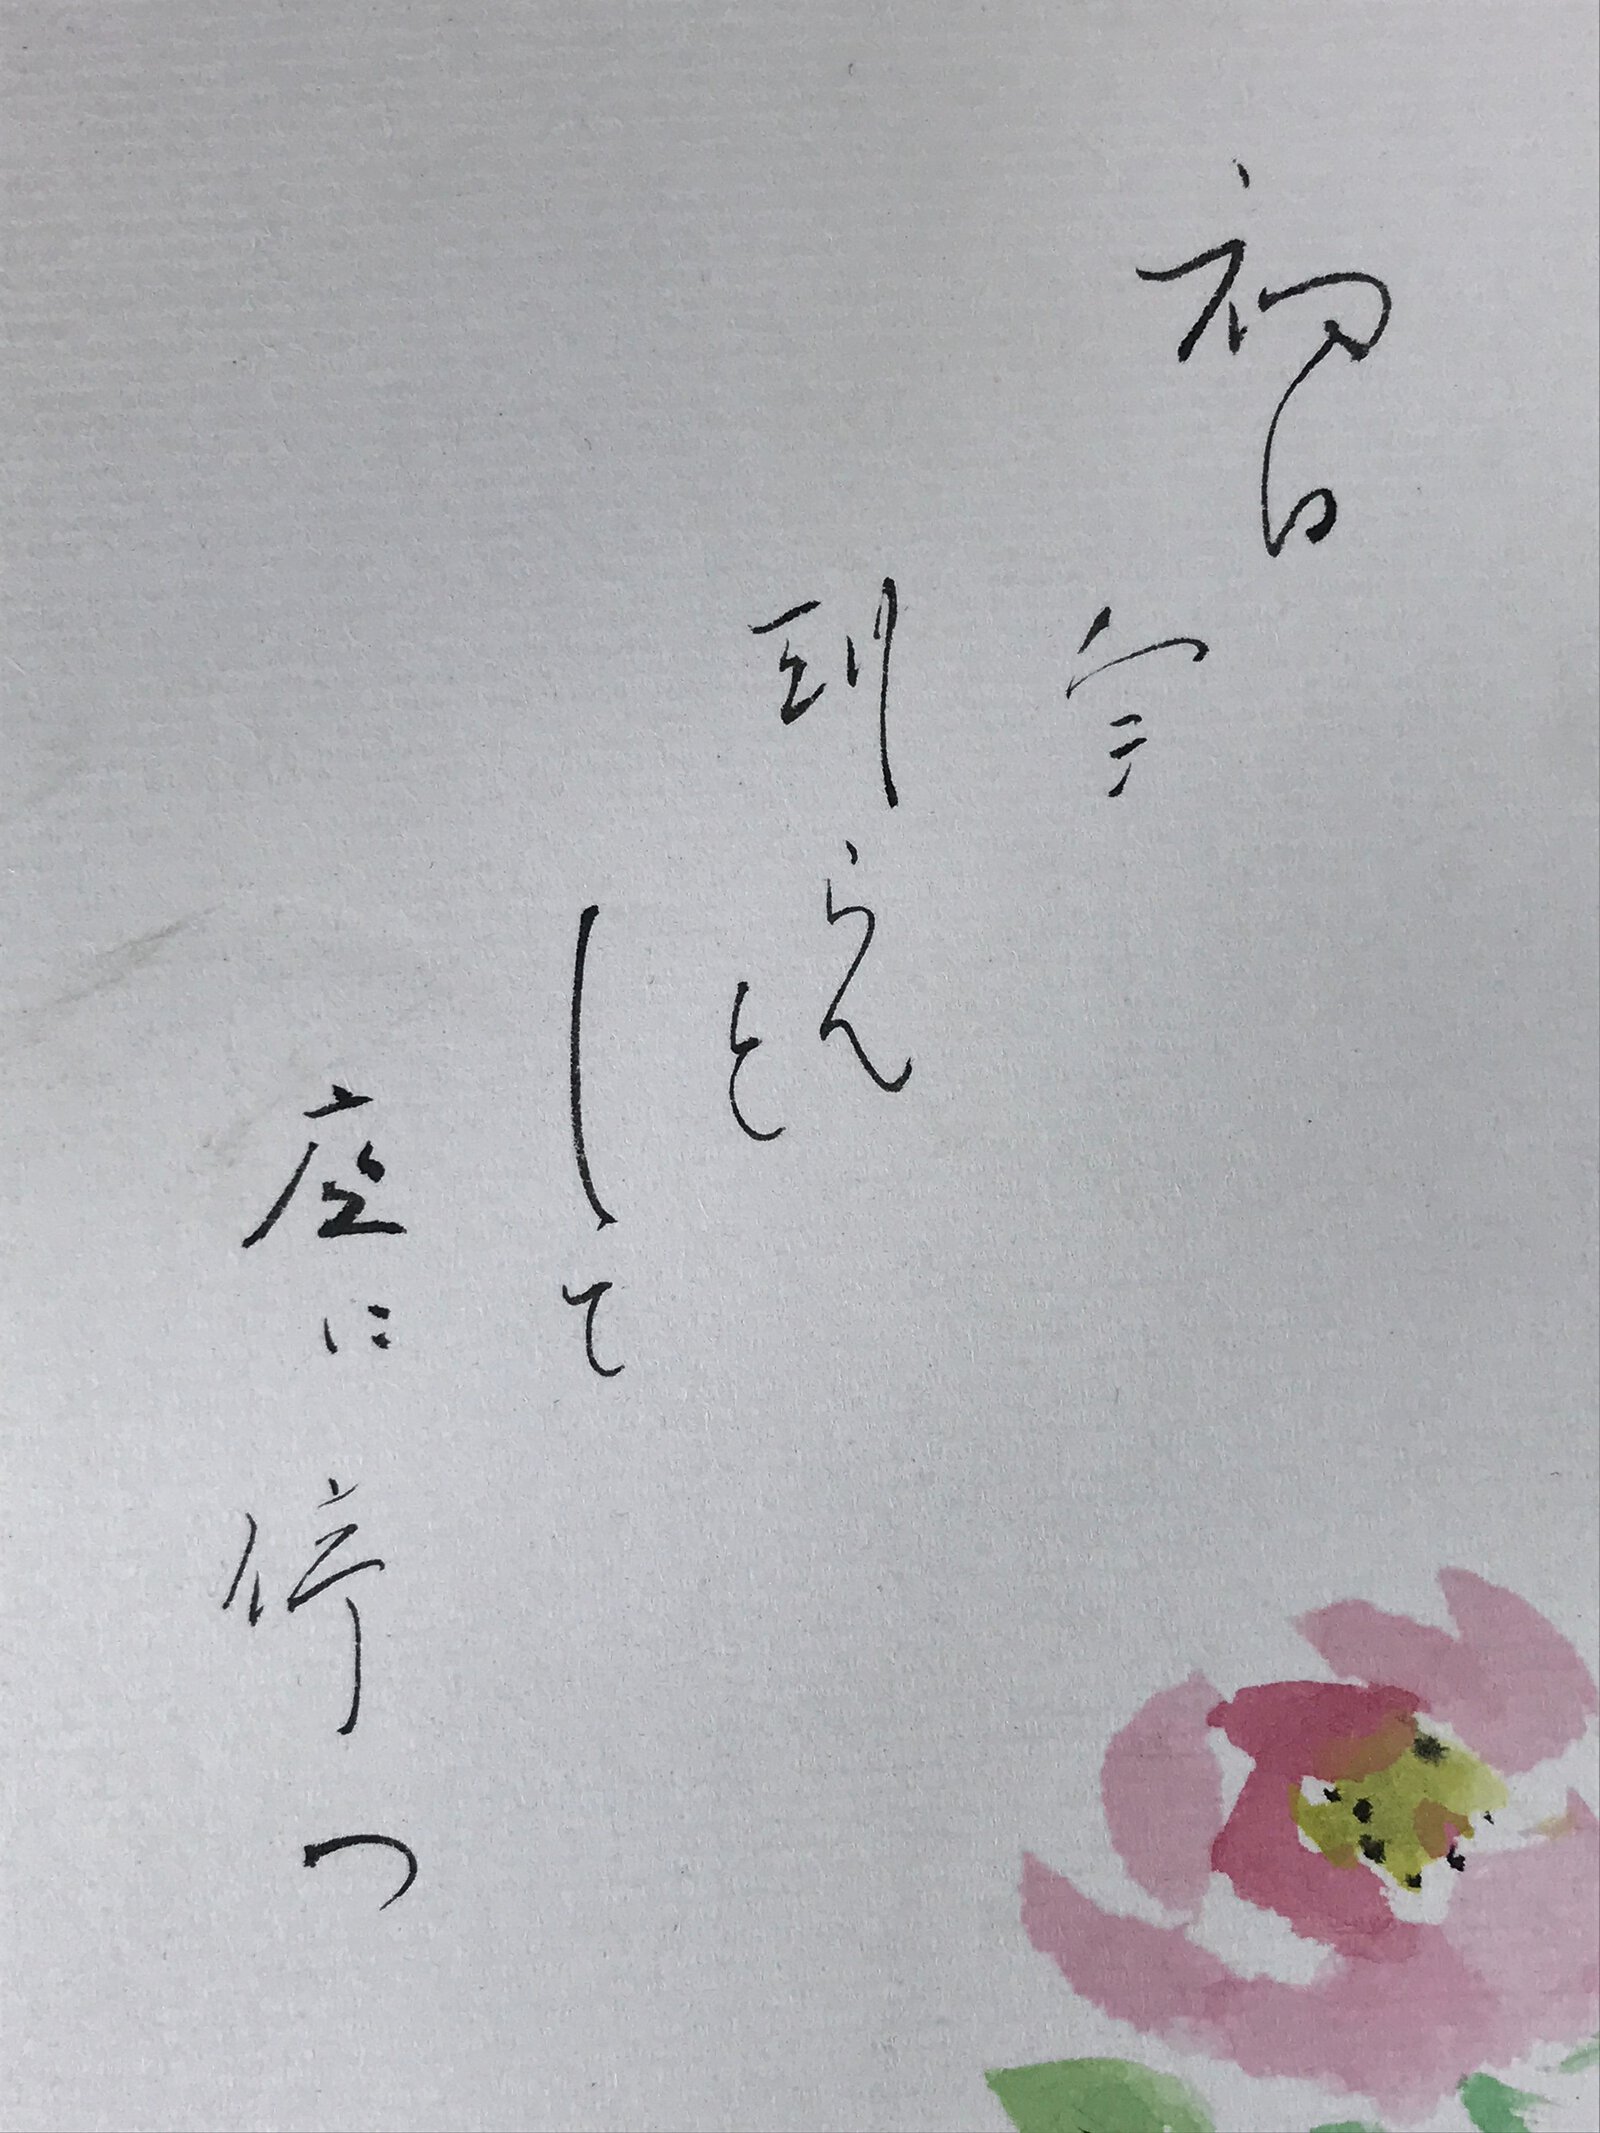 初日
今
到らん
と
して
座に待つ